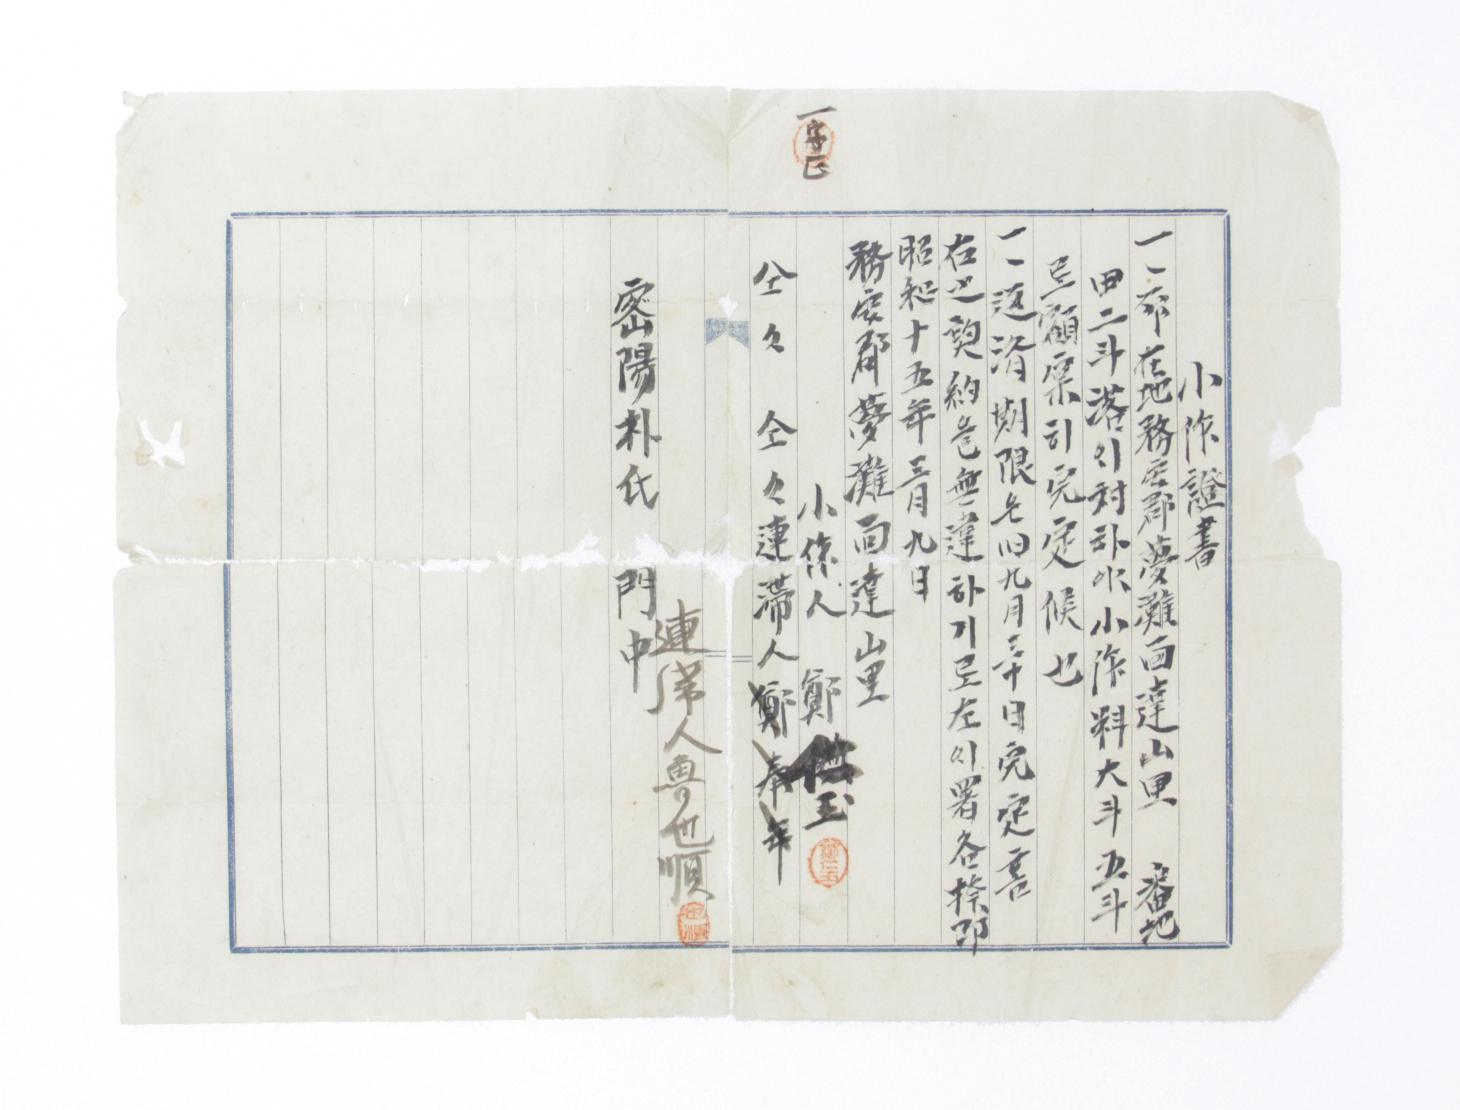 一字正
小作證書
一、所在地務安郡夢灘面達山里 番地
畓二斗落이対하야小作料大斗五斗
로願票히完定候也
一、返済期限은旧九月三十日完定喜
右之契約을無違하기로左이署名捺印
昭和十五年三月九日
務安郡夢灘面達山里
小作人 鄭 玉
仝々 仝々連滞人鄭奉年
連滞人魯也順
密陽朴氏 門中